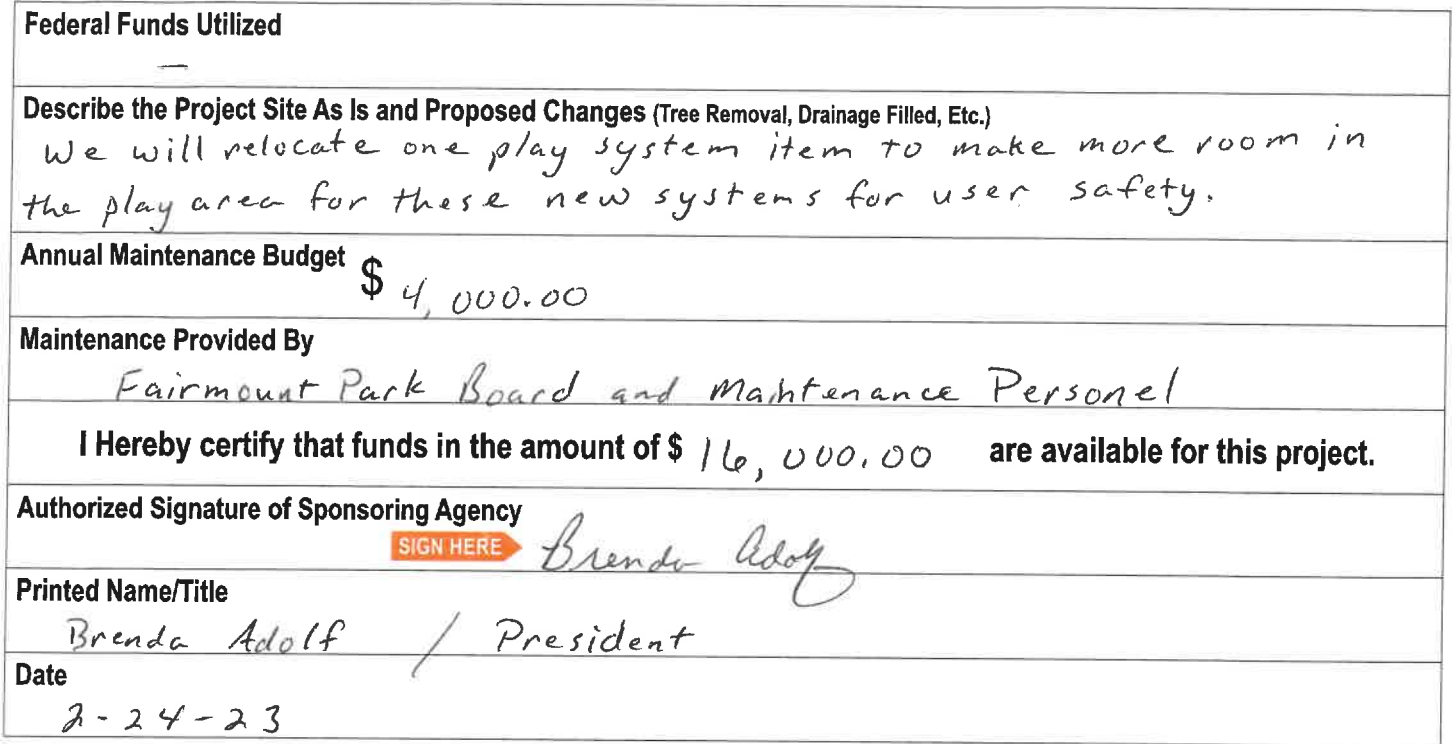 Federal Funds Utilized
—
Describe the Project Site As Is and Proposed Changes (Tree Removal, Drainage Filled, Etc.)
We will relocate one play system item to make more room in
the play area for these new systems for user safety.
Annual Maintenance Budget $ 4,000.00
Maintenance Provided By
Fairmount Park Board and Maintenance Personel
I Hereby certify that funds in the amount of $ 16,000.00 are available for this project.
Authorized Signature of Sponsoring Agency
SIGN HERE Brenda Adolf
Printed Name/Title
Brenda Adolf / President
Date
2-24-23